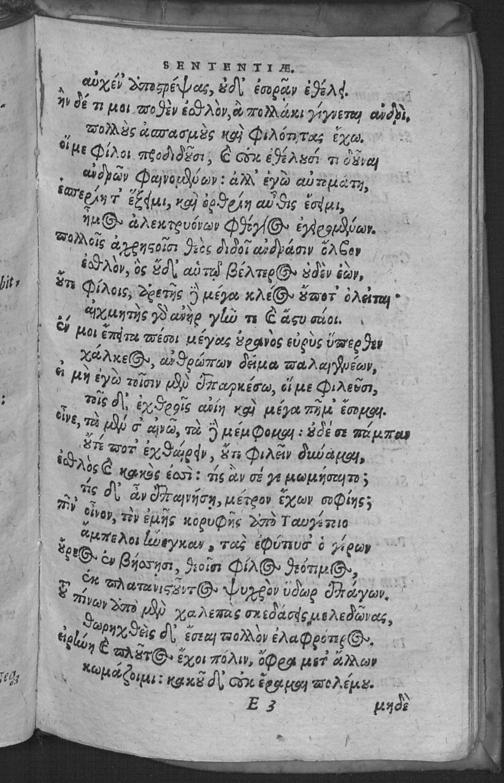 SENTENTIÆ.
αὐχέν' ὑποστρέψας, οὐδ' ἐσορᾶν ἐθέλει.
ἢν δέ τι μοι ποθὲν ἐσθλὸν, ἃ πολλάκι γίγνεται ἀνδρὶ,
πολλοὺς ἀσπασμοὺς καὶ φιλότητας ἔχω.
οἵ με φίλοι προδιδοῦσι, καὶ οὐκ ἐθέλουσί τι δοῦναι
ἀνδρῶν φαινομένων: ἀλλ' ἐγὼ αὐτομάτη,
ἑσπερίη τ' ἔξειμι, καὶ ὀρθρίη αὖθις ἔσειμι,
ἦμος ἀλεκτρυόνων φθόγγος ἐγειρομένων.
πολλοῖς ἀχρήστοισι θεὸς διδοῖ ἀνδράσιν ὄλβον
ἐσθλὸν, ὃς οὔδ' αὐτῷ βέλτερος οὐδὲν ἐὼν,
οὔτε φίλοις, ἀρετῆς ἢ μέγα κλέος οὔποτ' ὀλεῖται·
αἰχμητὴς γὸ ἀνὴρ γῆν τε καὶ ἄστυ σαοῖ.
ἔν μοι ἔπειτα πέσοι μέγας οὐρανὸς εὐρὺς ὕπερθεν
χάλκεος, ἀνθρώπων δεῖμα παλαιγενέων,
εἰ μὴ ἐγὼ τοῖσιν μὲν ἐπαρκέσω, οἵ με φιλεῦσι,
τοῖς δ' ἐχθροῖς ἀνίη καὶ μέγα πῆμ' ἔσομαι.
οἶνε, τὰ μέν σ' αἰνῶ, τὰ ἢ μέμφομαι: οὐδέ σε πάμπαν
οὔτέ ποτ' ἐχθαίρειν, οὔτε φιλεῖν δύναμαι,
ἐσθλὸς καὶ κακὸς ἐσσί: τίς ἂν σέ γε μωμήσαιτο;
τίς δ' ἂν ἐπαινήσῃ, μέτρον ἔχων σοφίης;
πῖν' οἶνον, τὸν ἐμῆς κορυφῆς ὑπὸ Ταυγέτιο
ἄμπελοι ἤνεγκαν, τὰς ἐφύτευσ' ὁ γέρων
οὔρεος ἐν βήσσῃσι, θεοῖσι φίλος θεότιμος,
ἐκ πλατανιστοῦντος ψυχρὸν ὕδωρ ἐπάγων.
τοῦ πίνων ἀπὸ μὲν χαλεπὰς σκεδάσεις μελεδῶνας,
θωρηχθεὶς δ' ἔσεαι πολλὸν ἐλαφρότερος.
εἰρήνη καὶ πλοῦτος ἔχοι πόλιν, ὄφρα μετ' ἄλλων
κωμάζοιμι: κακοῦ δ' οὐκ ἔραμαι πολέμου.
E 3 μηδὲ